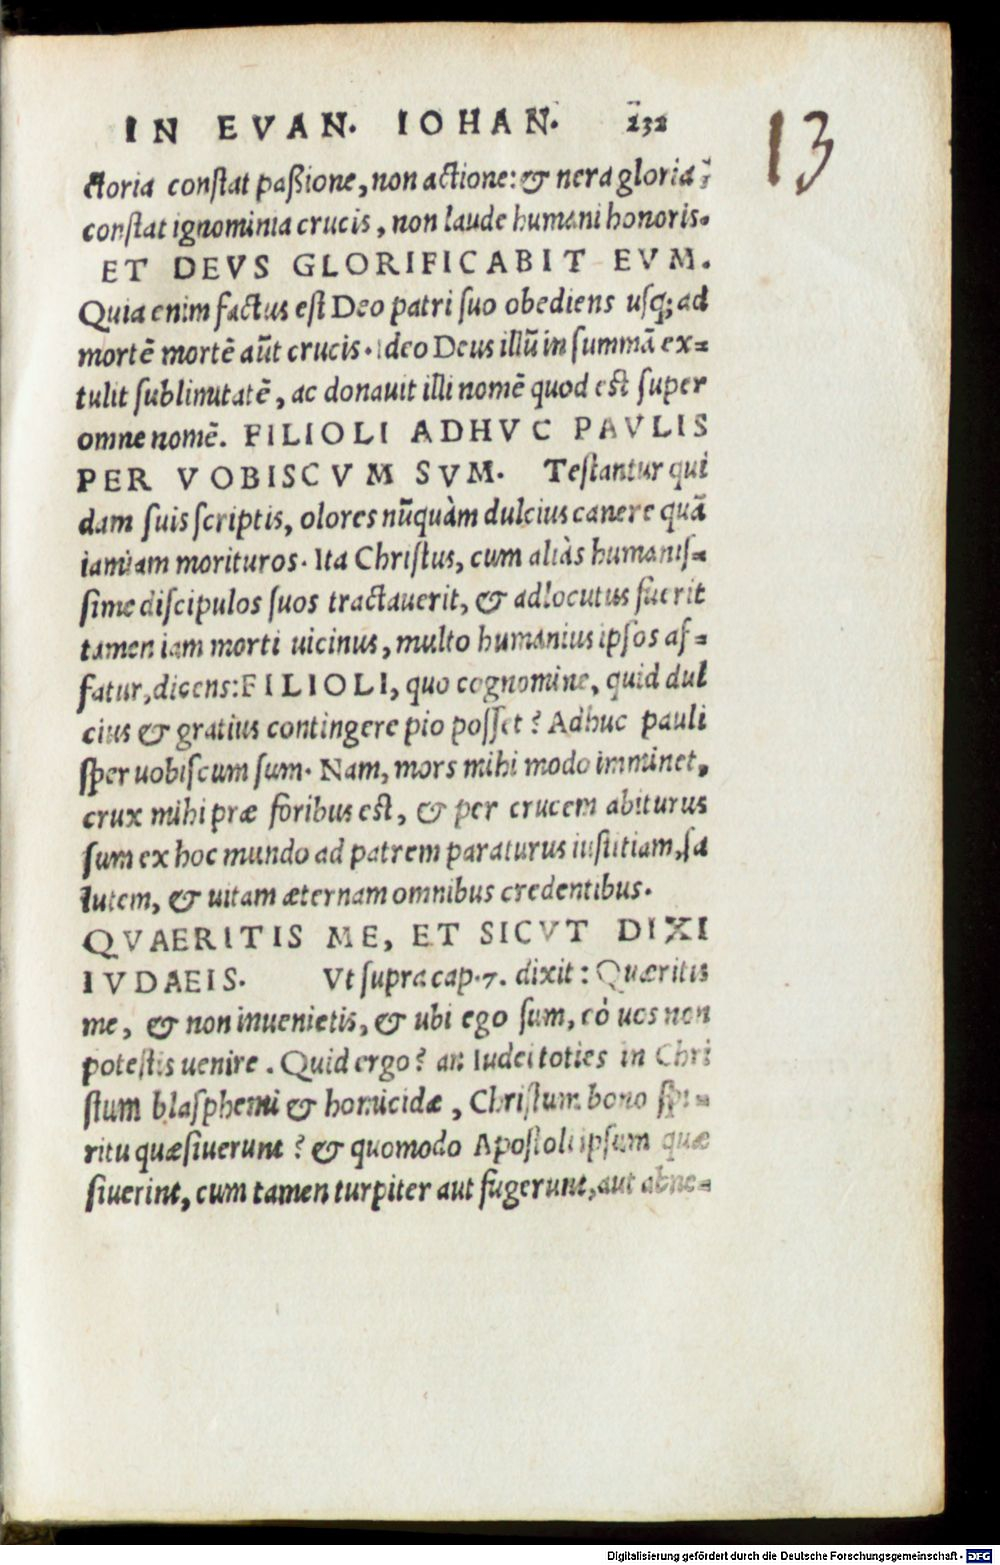 IN EVAN. IOHAN. 232
13
ctoria constat paßione, non actione: & uera gloria
constat ignominia crucis, non laude humani honoris.
ET DEVS GLORIFICABIT EVM.
Quia enim factus est Deo patri suo obediens usq; ad
mortē mortē aūt crucis. Ideo Deus illū in summā ex=
tulit sublimitatē, ac donauit illi nomē quod est super
omne nomē. FILIOLI ADHVC PAVLIS
PER VOBISCVM SVM. Testantur qui
dam suis scriptis, olores nūquàm dulcius canere quā
iamiam morituros. Ita Christus, cum aliàs humanis=
sime discipulos suos tractauerit, & adlocutus fuerit
tamen iam morti uicinus, multo humanius ipsos af=
fatur, dicens: FILIOLI, quo cognomine, quid dul
cius & gratius contingere pio posset? Adhuc pauli
sper uobiscum sum. Nam, mors mihi modo imminet,
crux mihi præ foribus est, & per crucem abiturus
sum ex hoc mundo ad patrem paraturus iustitiam, sa
lutem, & uitam æternam omnibus credentibus.
QVAERITIS ME, ET SICVT DIXI
IVDAEIS. Vt supra cap. 7. dixit: Quæritis
me, & non inuenietis, & ubi ego sum, eò uos non
potestis uenire. Quid ergo? an Iudei toties in Chri
stum blasphemi & homicidæ, Christum bono spi=
ritu quæsiuerunt? & quomodo Apostoli ipsum quæ
siuerint, cum tamen turpiter aut fugerunt, aut abne=
Digitalisierung gefördert durch die Deutsche Forschungsgemeinschaft - DFG